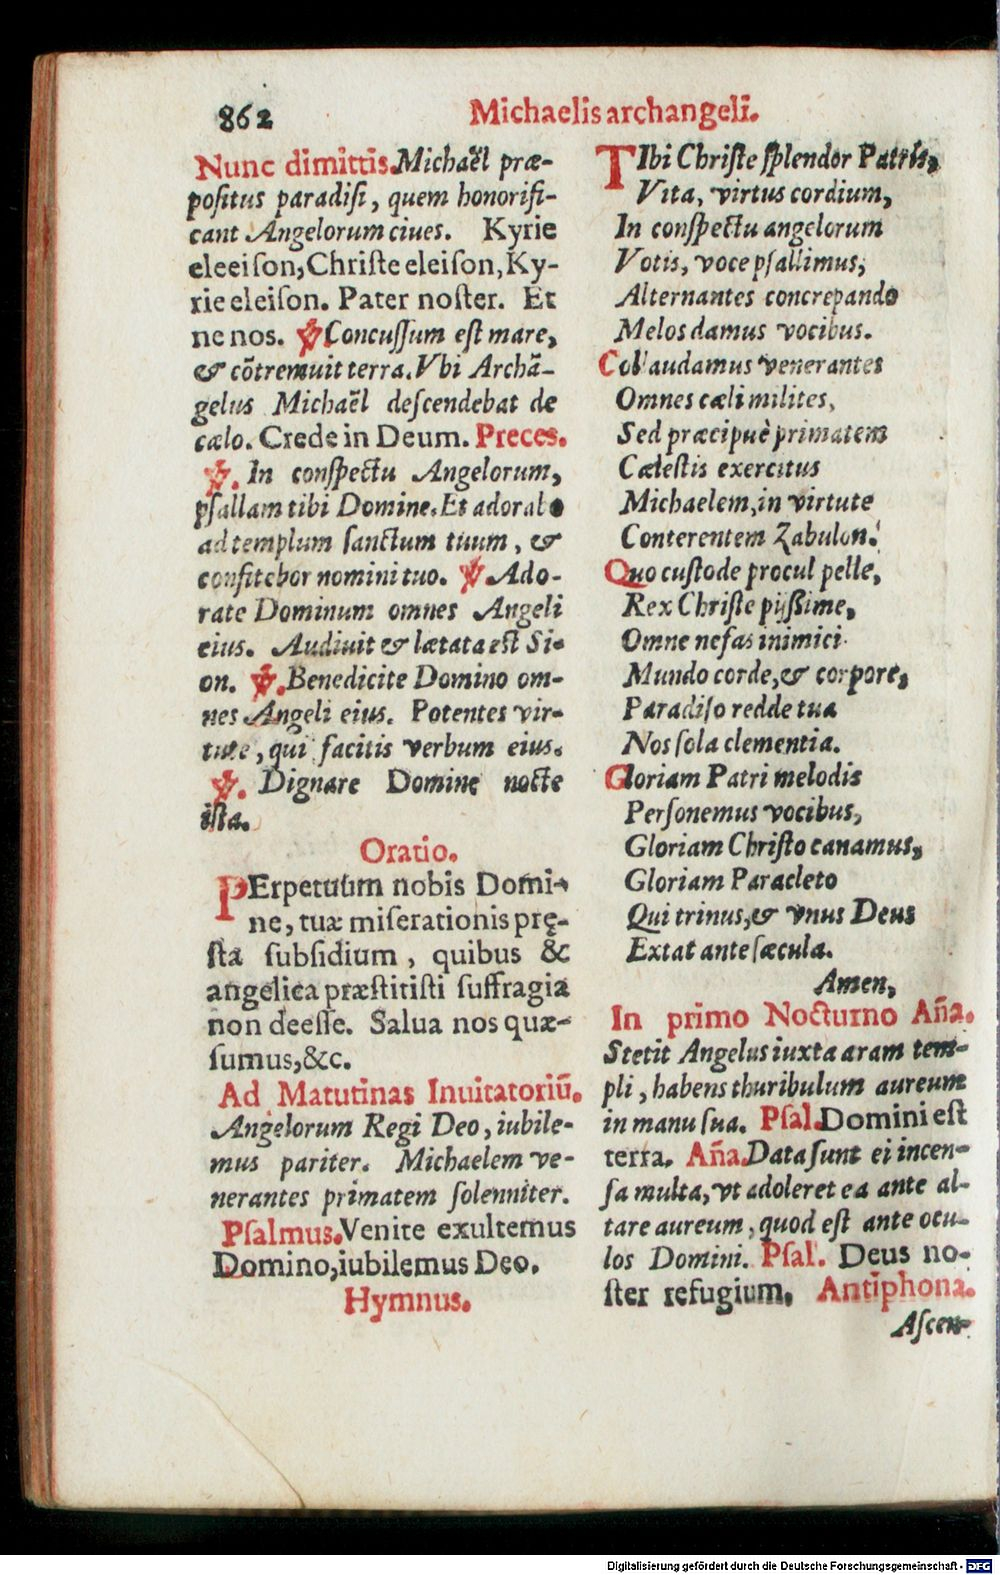 862
Michaelis archangeli.
Nunc dimittis. Michaël præ-
positus paradisi, quem honorifi-
cant Angelorum ciues. Kyrie
eleeison, Christe eleison, Ky-
rie eleison. Pater noster. Et
ne nos. ℣ Concussum est mare,
& cõtremuit terra. Vbi Archã-
gelus Michaël descendebat de
cælo. Crede in Deum. Preces.
℣. In conspectu Angelorum,
psallam tibi Domine. Et adorabo
ad templum sanctum tuum, &
confitebor nomini tuo. ℣. Ado-
rate Dominum omnes Angeli
eius. Audiuit & lætata est Si-
on. ℣. Benedicite Domino om-
nes Angeli eius. Potentes vir-
tute, qui facitis verbum eius.
℣. Dignare Domine nocte
ista.
Oratio.
PErpetuum nobis Domi-
ne, tuæ miserationis prę-
sta subsidium, quibus &
angelica præstitisti suffragia
non deesse. Salua nos quæ-
sumus, &c.
Ad Matutinas Inuitatoriũ.
Angelorum Regi Deo, iubile-
mus pariter. Michaelem ve-
nerantes primatem solenniter.
Psalmus. Venite exultemus
Domino, iubilemus Deo.
Hymnus.
TIbi Christe splendor Patris,
Vita, virtus cordium,
In conspectu angelorum
Votis, voce psallimus,
Alternantes concrepando
Melos damus vocibus.
Collaudamus venerantes
Omnes cæli milites,
Sed præcipuè primatem
Cælestis exercitus
Michaelem, in virtute
Conterentem Zabulon.
Quo custode procul pelle,
Rex Christe pijssime,
Omne nefas inimici
Mundo corde, & corpore,
Paradiso redde tua
Nos sola clementia.
Gloriam Patri melodis
Personemus vocibus,
Gloriam Christo canamus,
Gloriam Paracleto
Qui trinus, & vnus Deus
Extat ante sæcula.
Amen,
In primo Nocturno Añã.
Stetit Angelus iuxta aram tem-
pli, habens thuribulum aureum
in manu sua. Psal. Domini est
terra. Aña. Data sunt ei incen-
sa multa, vt adoleret ea ante al-
tare aureum, quod est ante ocu-
los Domini. Psal. Deus no-
ster refugium. Antiphona.
Ascen-
Digitalisierung gefördert durch die Deutsche Forschungsgemeinschaft - DFG